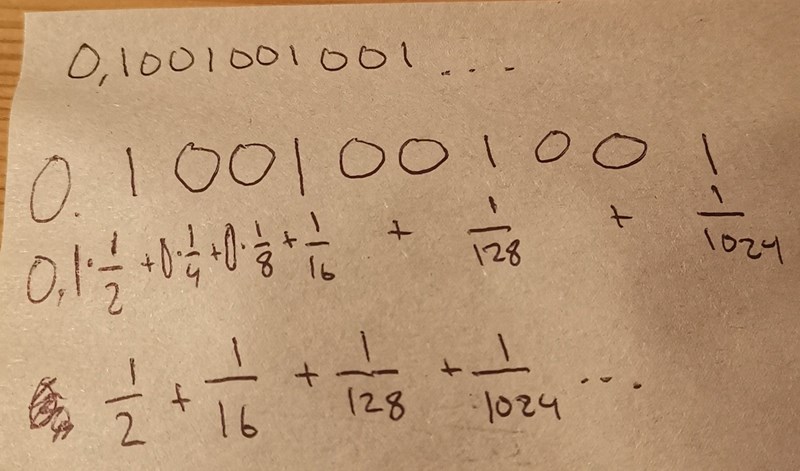 0,1001001001...
0.1001001001
0,1·1/2 + 0·1/4 + 0·1/8 + 1/16 + 1/128 + 1/1024
1/2 + 1/16 + 1/128 + 1/1024 ...